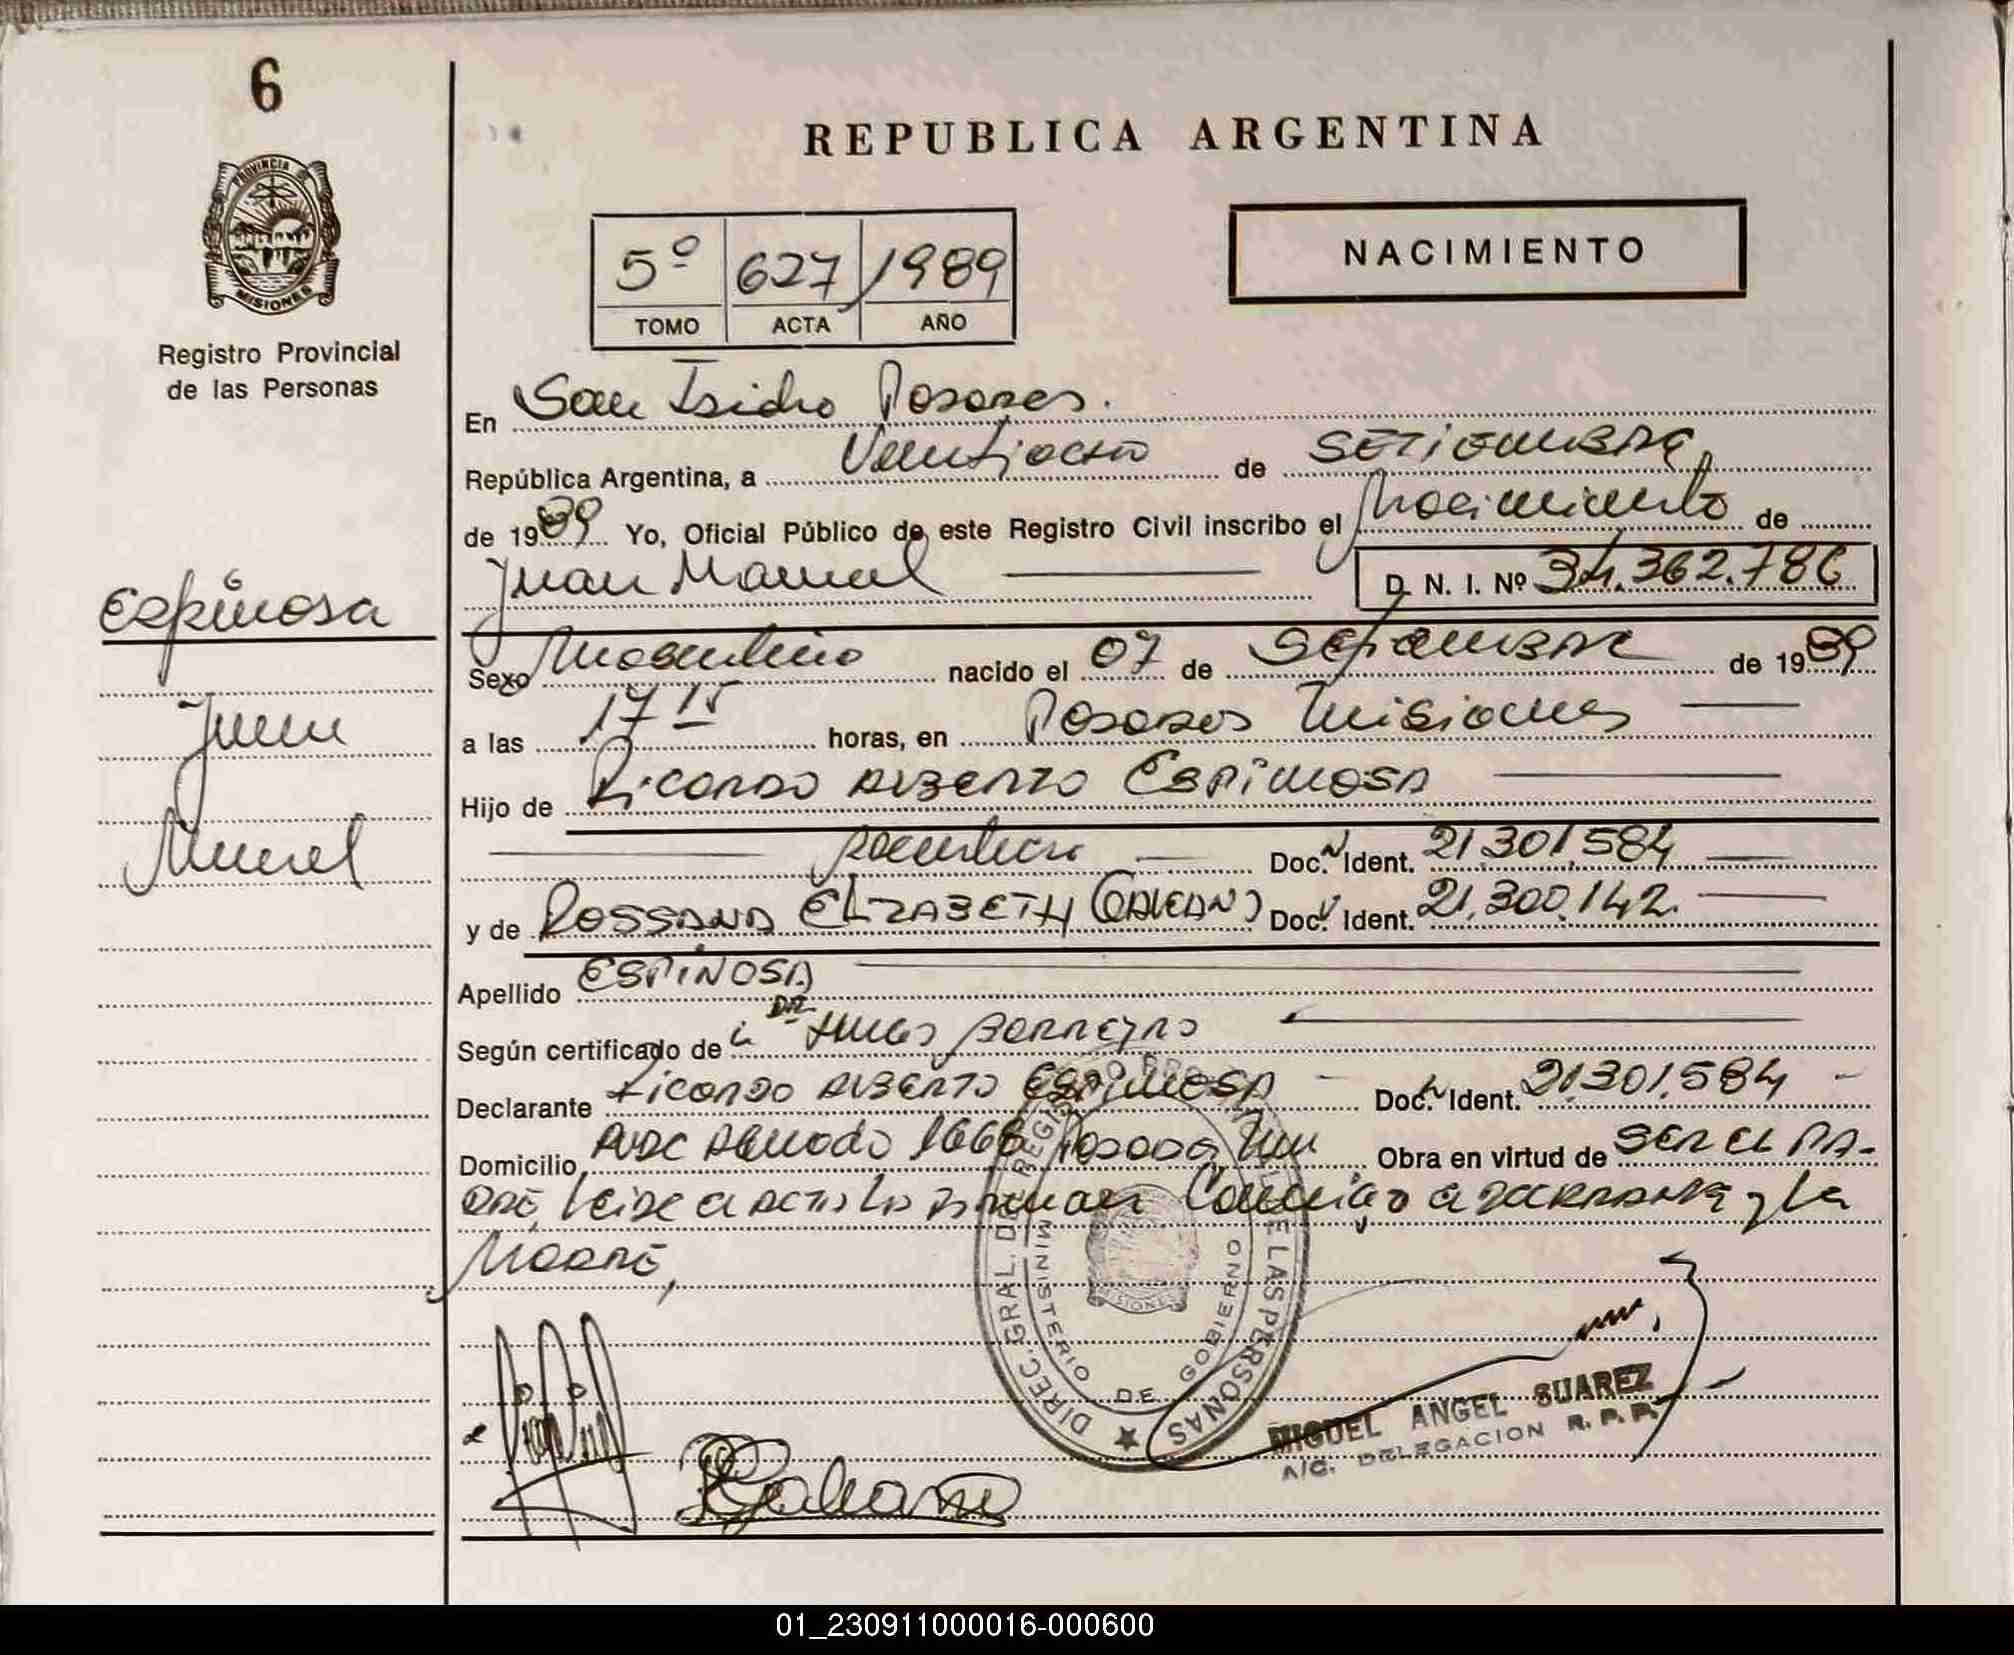 6
PROVINCIA DE
MISIONES
Registro Provincial
de las Personas
Espinosa
Juan
Manuel
REPUBLICA ARGENTINA
NACIMIENTO
5º 627 1989
TOMO ACTA AÑO
En San Isidro Posadas.
República Argentina, a Veintiocho de SETIEMBRE
de 1989 Yo, Oficial Público de este Registro Civil inscribo el Nacimiento de
Juan Manuel D. N. I. Nº 34.362.786
Sexo Masculino nacido el 07 de Setiembre de 1989
a las 17 15 horas, en Posadas Misiones
Hijo de Ricardo Alberto Espinosa
Doc. Ident. 21.301.584
y de ROSSANA ELIZABETH GALEANO Doc. Ident. 21.300.142.
Apellido ESPINOSA
Según certificado de DR Hugo Barreyro
Declarante Ricardo Alberto ESPINOSA Doc. Ident. 21.301.584
Domicilio 1666 Posadas Mnes Obra en virtud de SER EL PA-
DRE, Leida el acta la firman Conmigo el declarante y la
Madre,
DIREC. GRAL. DE REGISTRO PROVINCIAL DE LAS PERSONAS
MINISTERIO DE GOBIERNO
MISIONES
RGaleano
MIGUEL ANGEL SUAREZ
A/C. DELEGACION R. P. P.
01_230911000016-000600